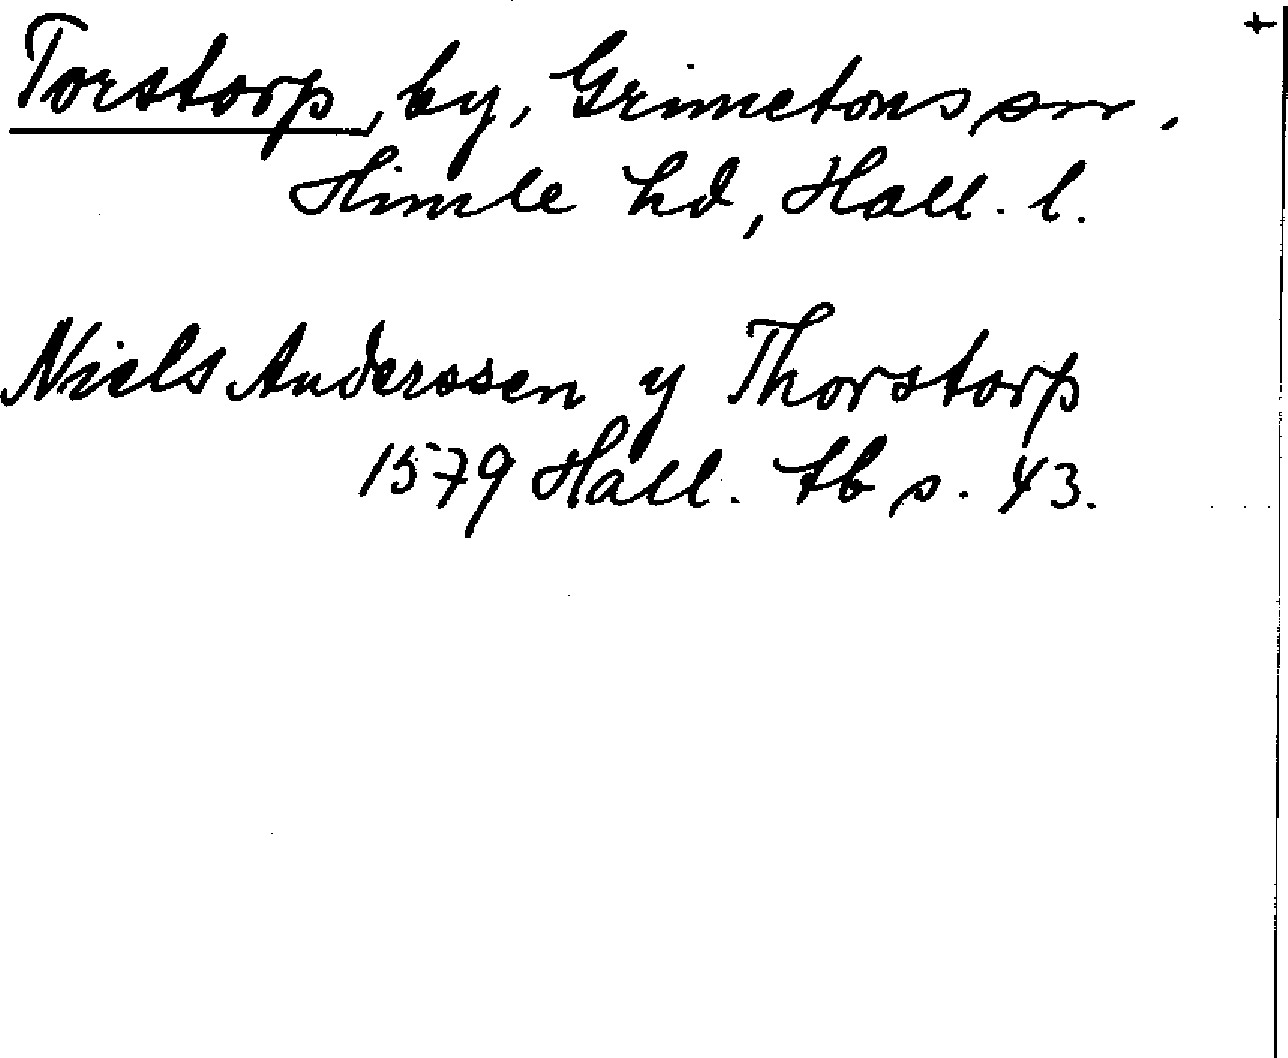 Torstorp, by, Grimetons sn.
Himle hd, Hall. l.
Niels Anderssen y Thorstorp
1579 Hall. tb s. 43.